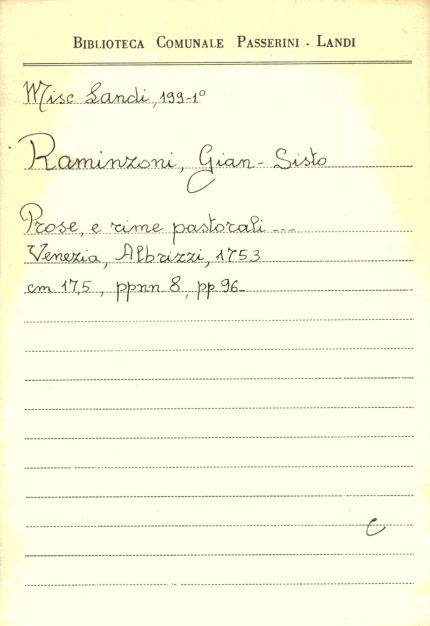 BIBLIOTECA COMUNALE PASSERINI - LANDI
Misc Landi, 199-1°
Raminzoni, Gian-Sisto
Prose, e rime pastorali ...
Venezia, Albrizzi, 1753
cm 17,5, ppnn 8, pp. 96.
C